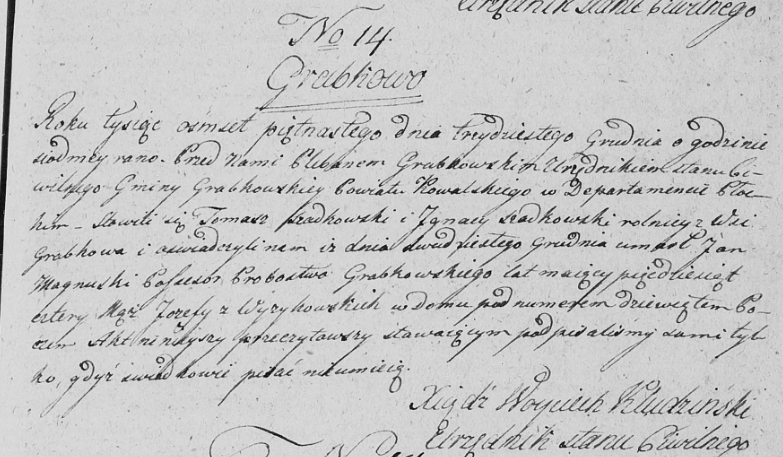 Urzędnik stanu Ciwilnego
No 14.
Grabkowo
Roku tysiąc osmset piętnastego dnia trzydziestego Grudnia o godzinie
siodmey rano. Przed Nami Plebanem Grabkowskim Urzędnikiem stanu Ci-
wilnego Gminy Grabkowskiey Powiatu Kowalskiego w Departamencie Płoc-
kim – stawili się Tomasz Szadkowski i Jgnacy Szadkowski rolnicy z Wsi
Grabkowa i oswiadczyli nam iż dnia dwudziestego Grudnia umarł Jan
Magnuski Possesor Probostwa Grabkowskiego lat maiący pięćdziesiąt
cztery Mąż Jozefy z Wyrzykowskich w domu pod numerem dziewiątem Po-
czem Akt ninieyszy przeczytawszy stawaiącym podpisaliśmy sami tyl-
ko, gdyż swiadkowie pisać nieumieią.
Xiądz Woyciech Kludziński
Urzędnik stanu Ciwilnego